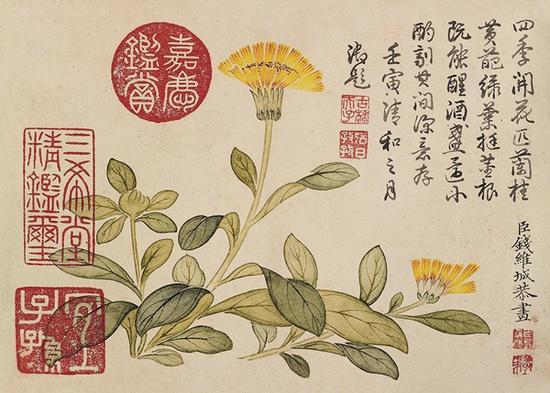 四季開花匹蘭桂
黃葩綠葉挺莖根
既能醒酒盞還小
酌其間深意存
壬寅清和之月
御題
古稀天子
臣錢維城恭畫
嘉慶鑑賞
三希堂精鑑璽
宜子孫